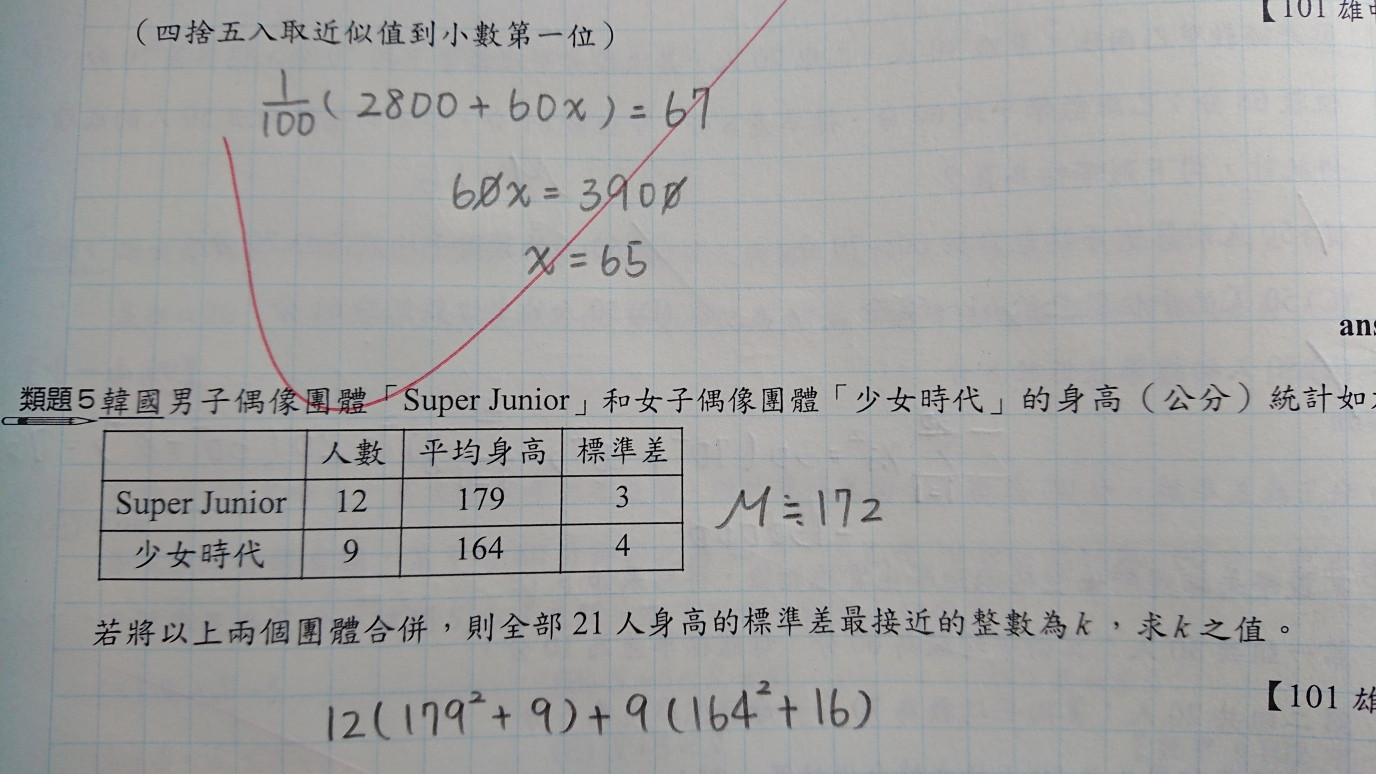 （四捨五入取近似值到小數第一位）
【101 雄
1/100 ( 2800 + 60x ) = 67
60x = 3900
x = 65
ans
類題5 韓國男子偶像團體「Super Junior」和女子偶像團體「少女時代」的身高（公分）統計如
人數 平均身高 標準差
Super Junior 12 179 3
少女時代 9 164 4
M≒172
若將以上兩個團體合併，則全部 21 人身高的標準差最接近的整數為k，求k之值。
【101 雄
12(179²+9)+9(164²+16)